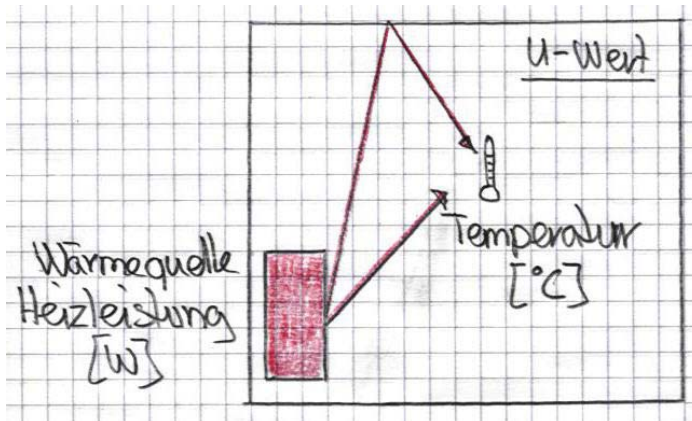 U-Wert
Temperatur
[°C]
Wärmequelle
Heizleistung
[W]